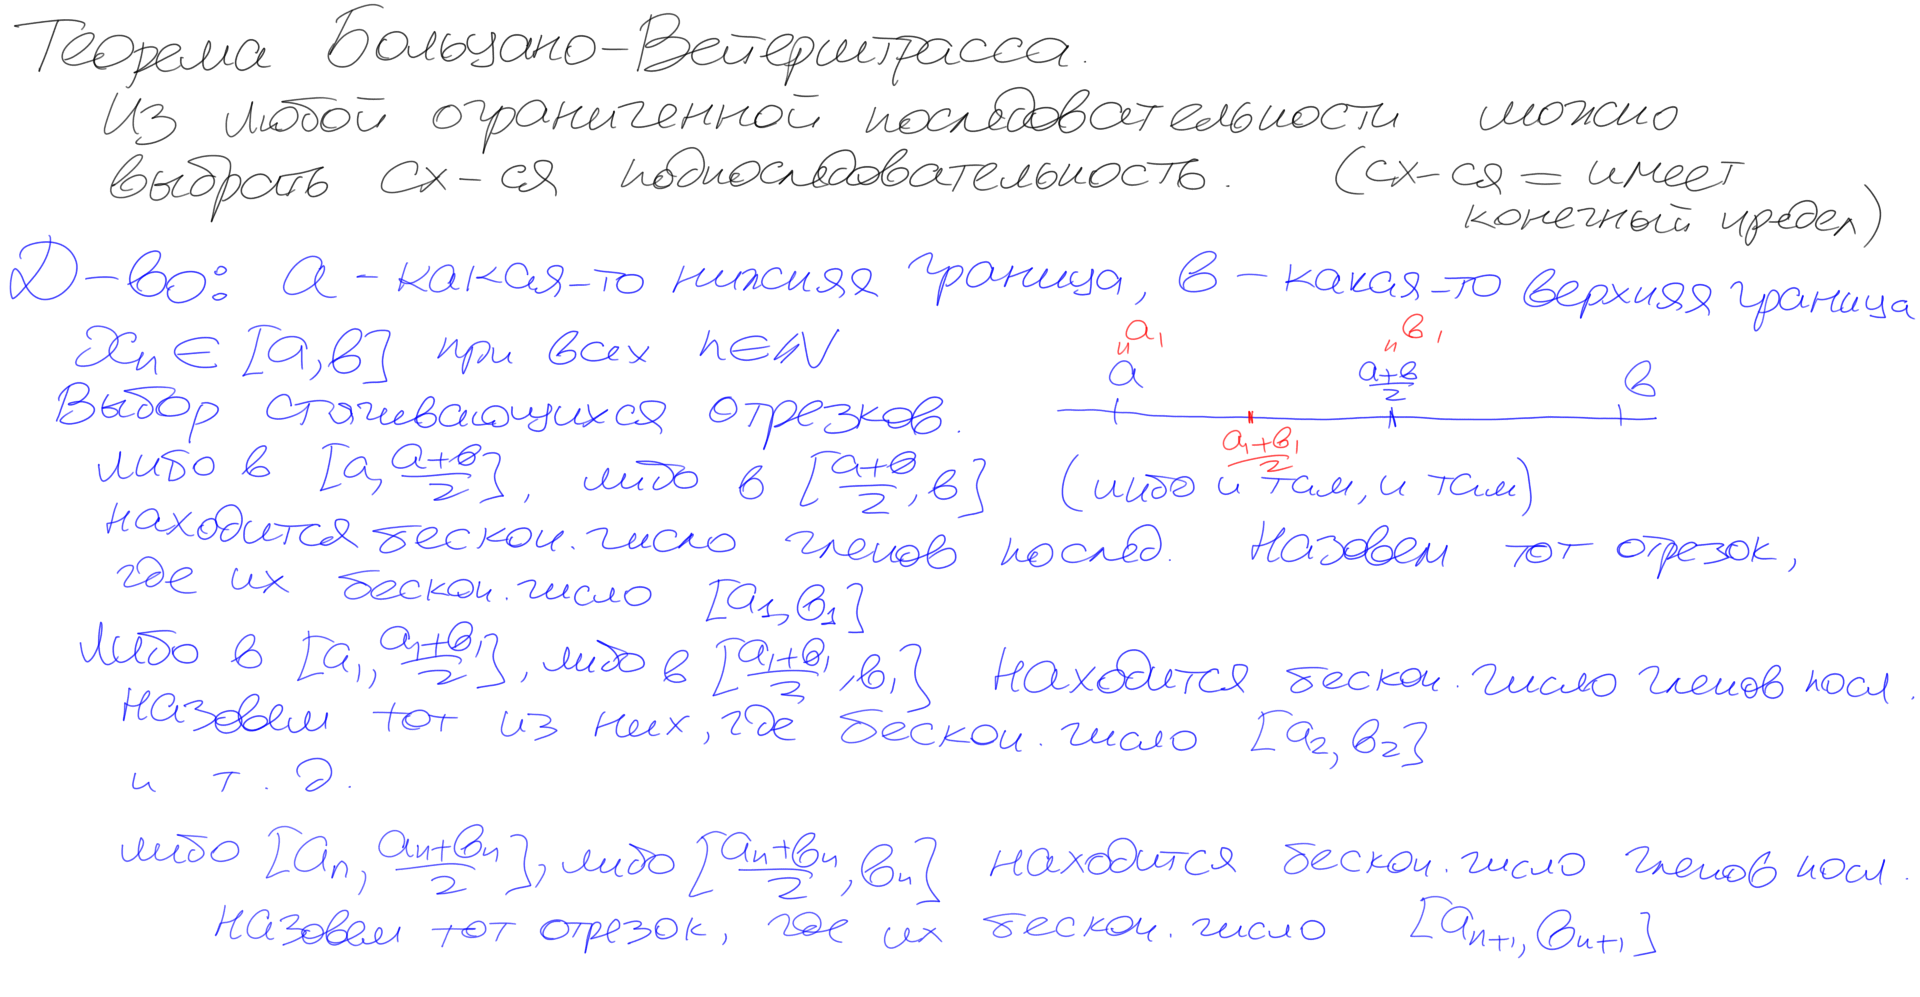 Теорема Больцано-Вейерштрасса.
Из любой ограниченной последовательности можно
выбрать сх-ся подпоследовательность. (сх-ся = имеет
конечный предел)
Д-во: a - какая-то нижняя граница, b - какая-то верхняя граница
xₙ ∈ [a, b] при всех n ∈ ℕ
a₁
b₁
a
(a+b)/2
b
(a₁+b₁)/2
Выбор стягивающихся отрезков.
либо в [a, (a+b)/2], либо в [(a+b)/2, b] (либо и там, и там)
находится бескон. число членов послед. Назовем тот отрезок,
где их бескон. число [a₁, b₁]
Либо в [a₁, (a₁+b₁)/2], либо в [(a₁+b₁)/2, b₁] находится бескон. число членов посл.
Назовем тот из них, где бескон. число [a₂, b₂]
и т. д.
либо [aₙ, (aₙ+bₙ)/2], либо [(aₙ+bₙ)/2, bₙ] находится бескон. число членов посл.
Назовем тот отрезок, где их бескон. число [aₙ₊₁, bₙ₊₁]